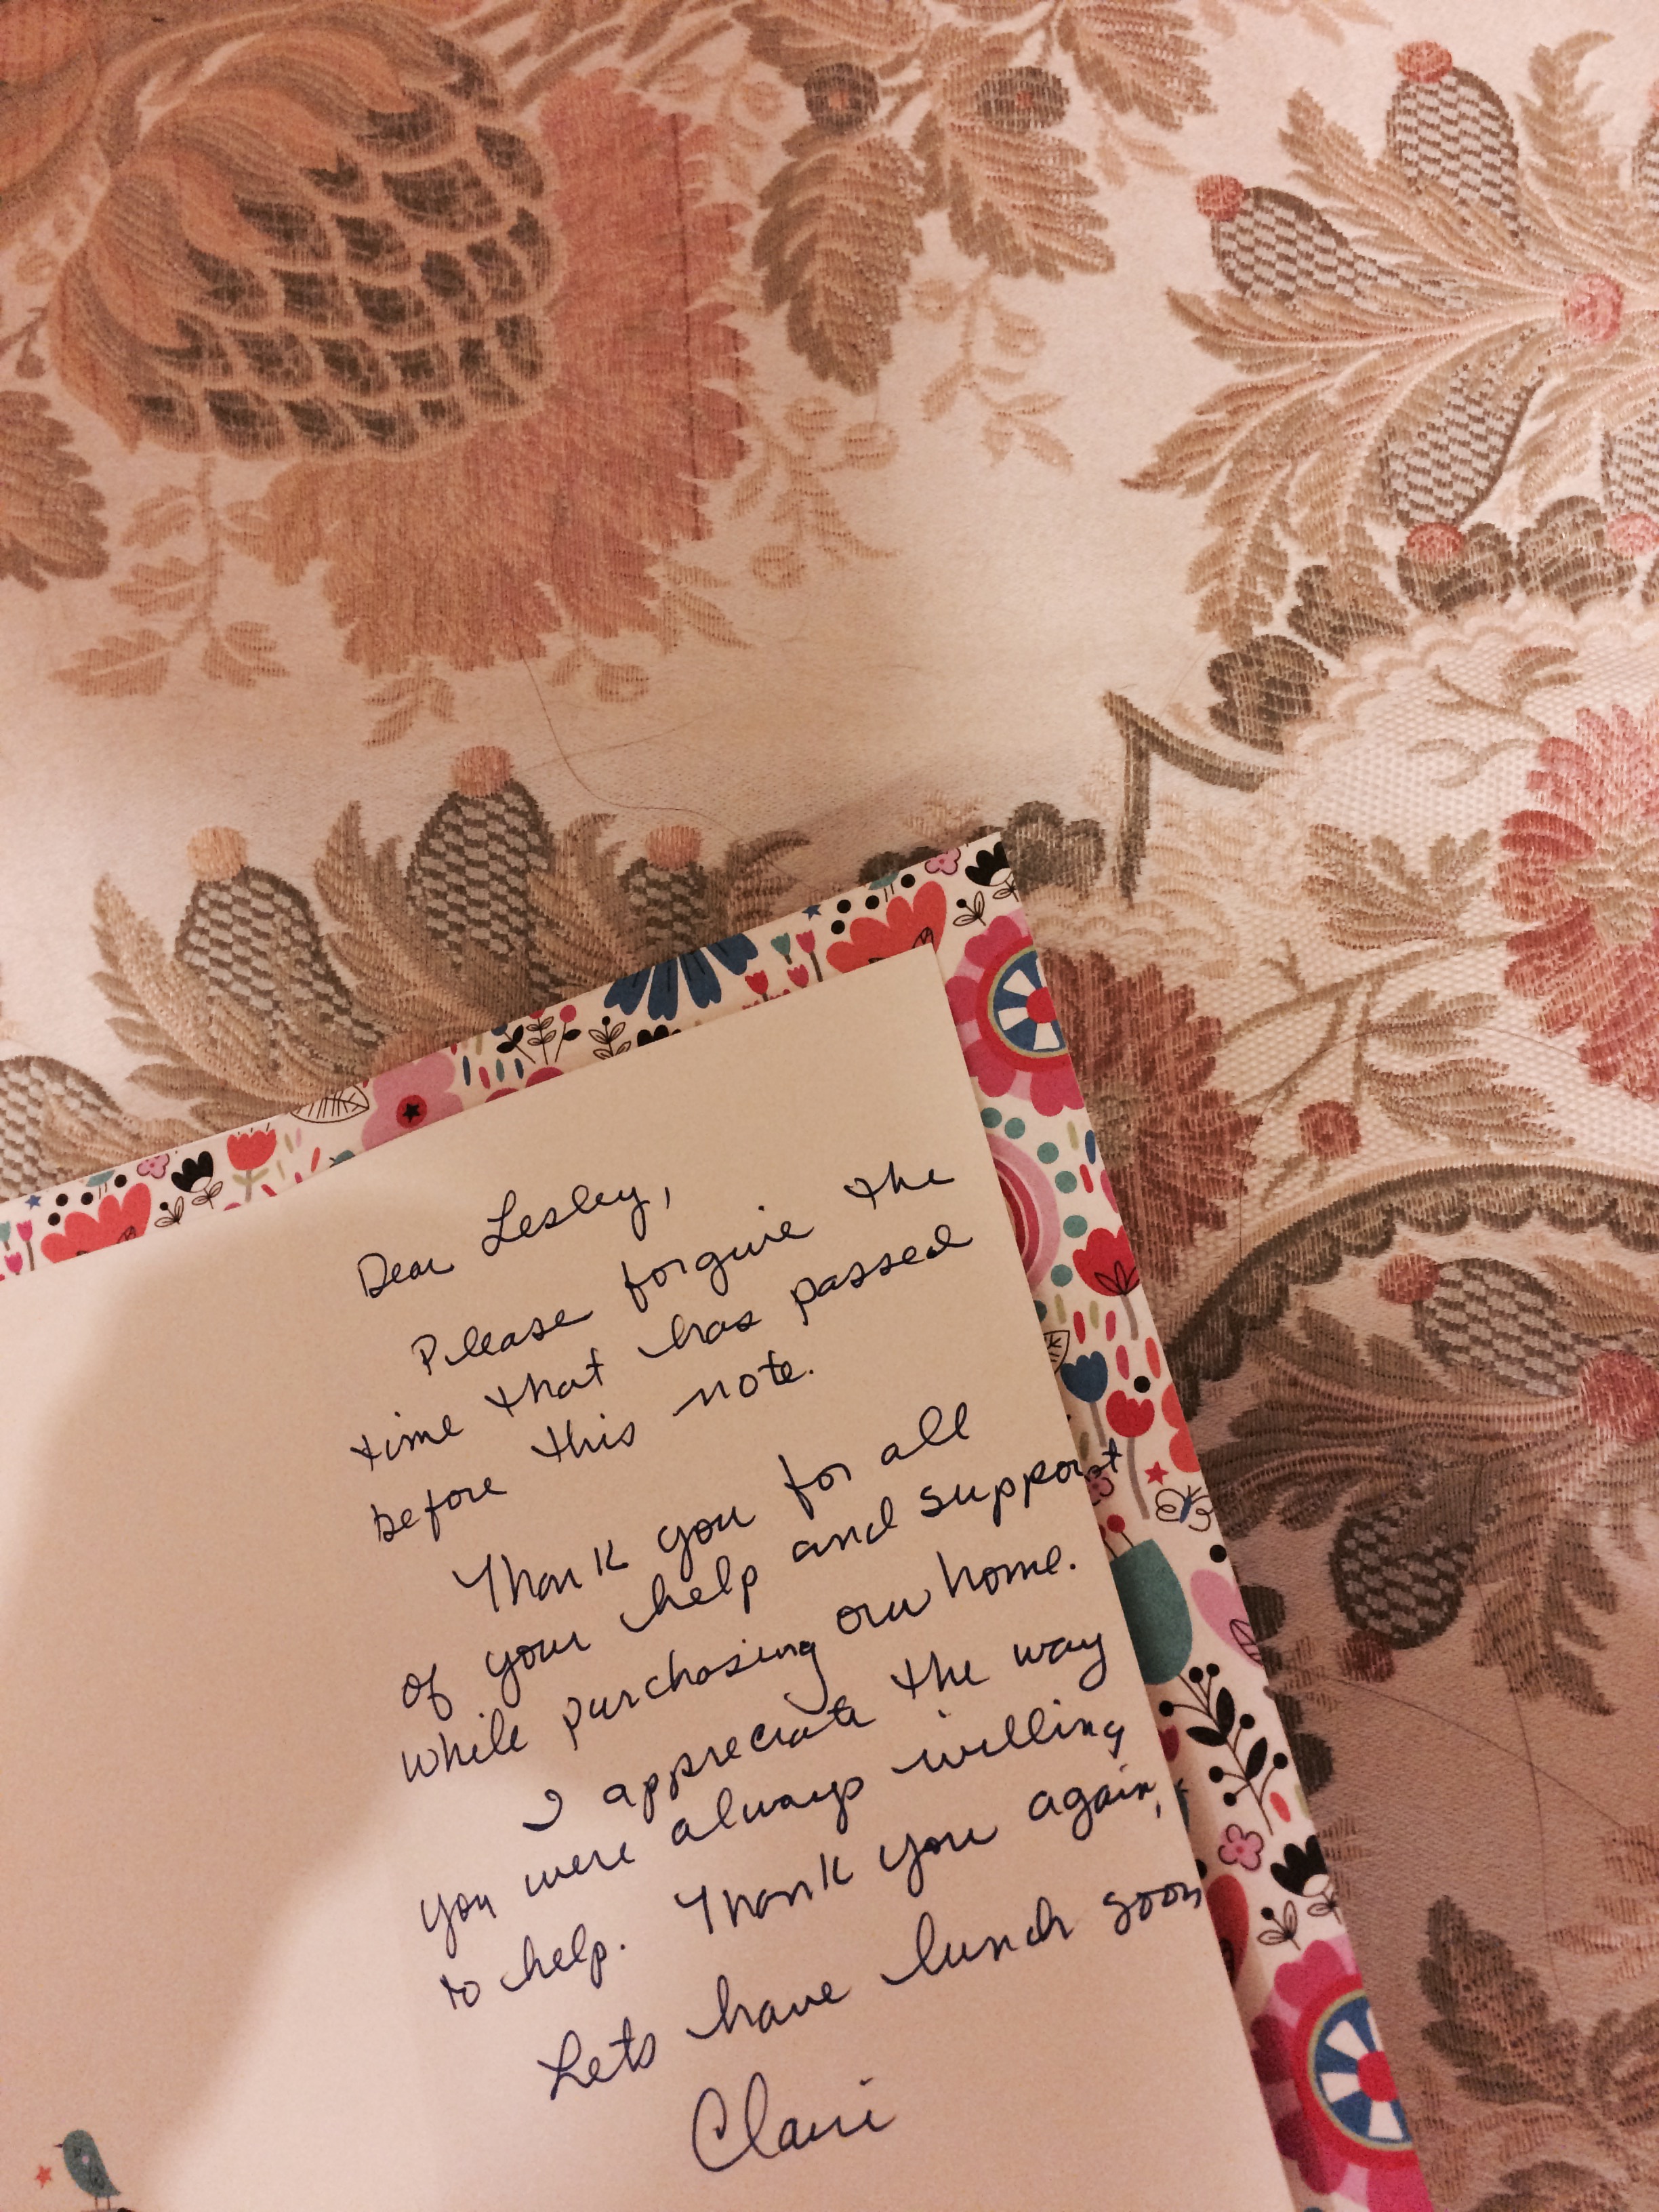 Dear Lesley,
Please forgive the
time that has passed
before this note.
Thank you for all
of your help and support
while purchasing our home.
I appreciate the way
you were always willing
to help. Thank you again,
Lets have lunch soon
Clari